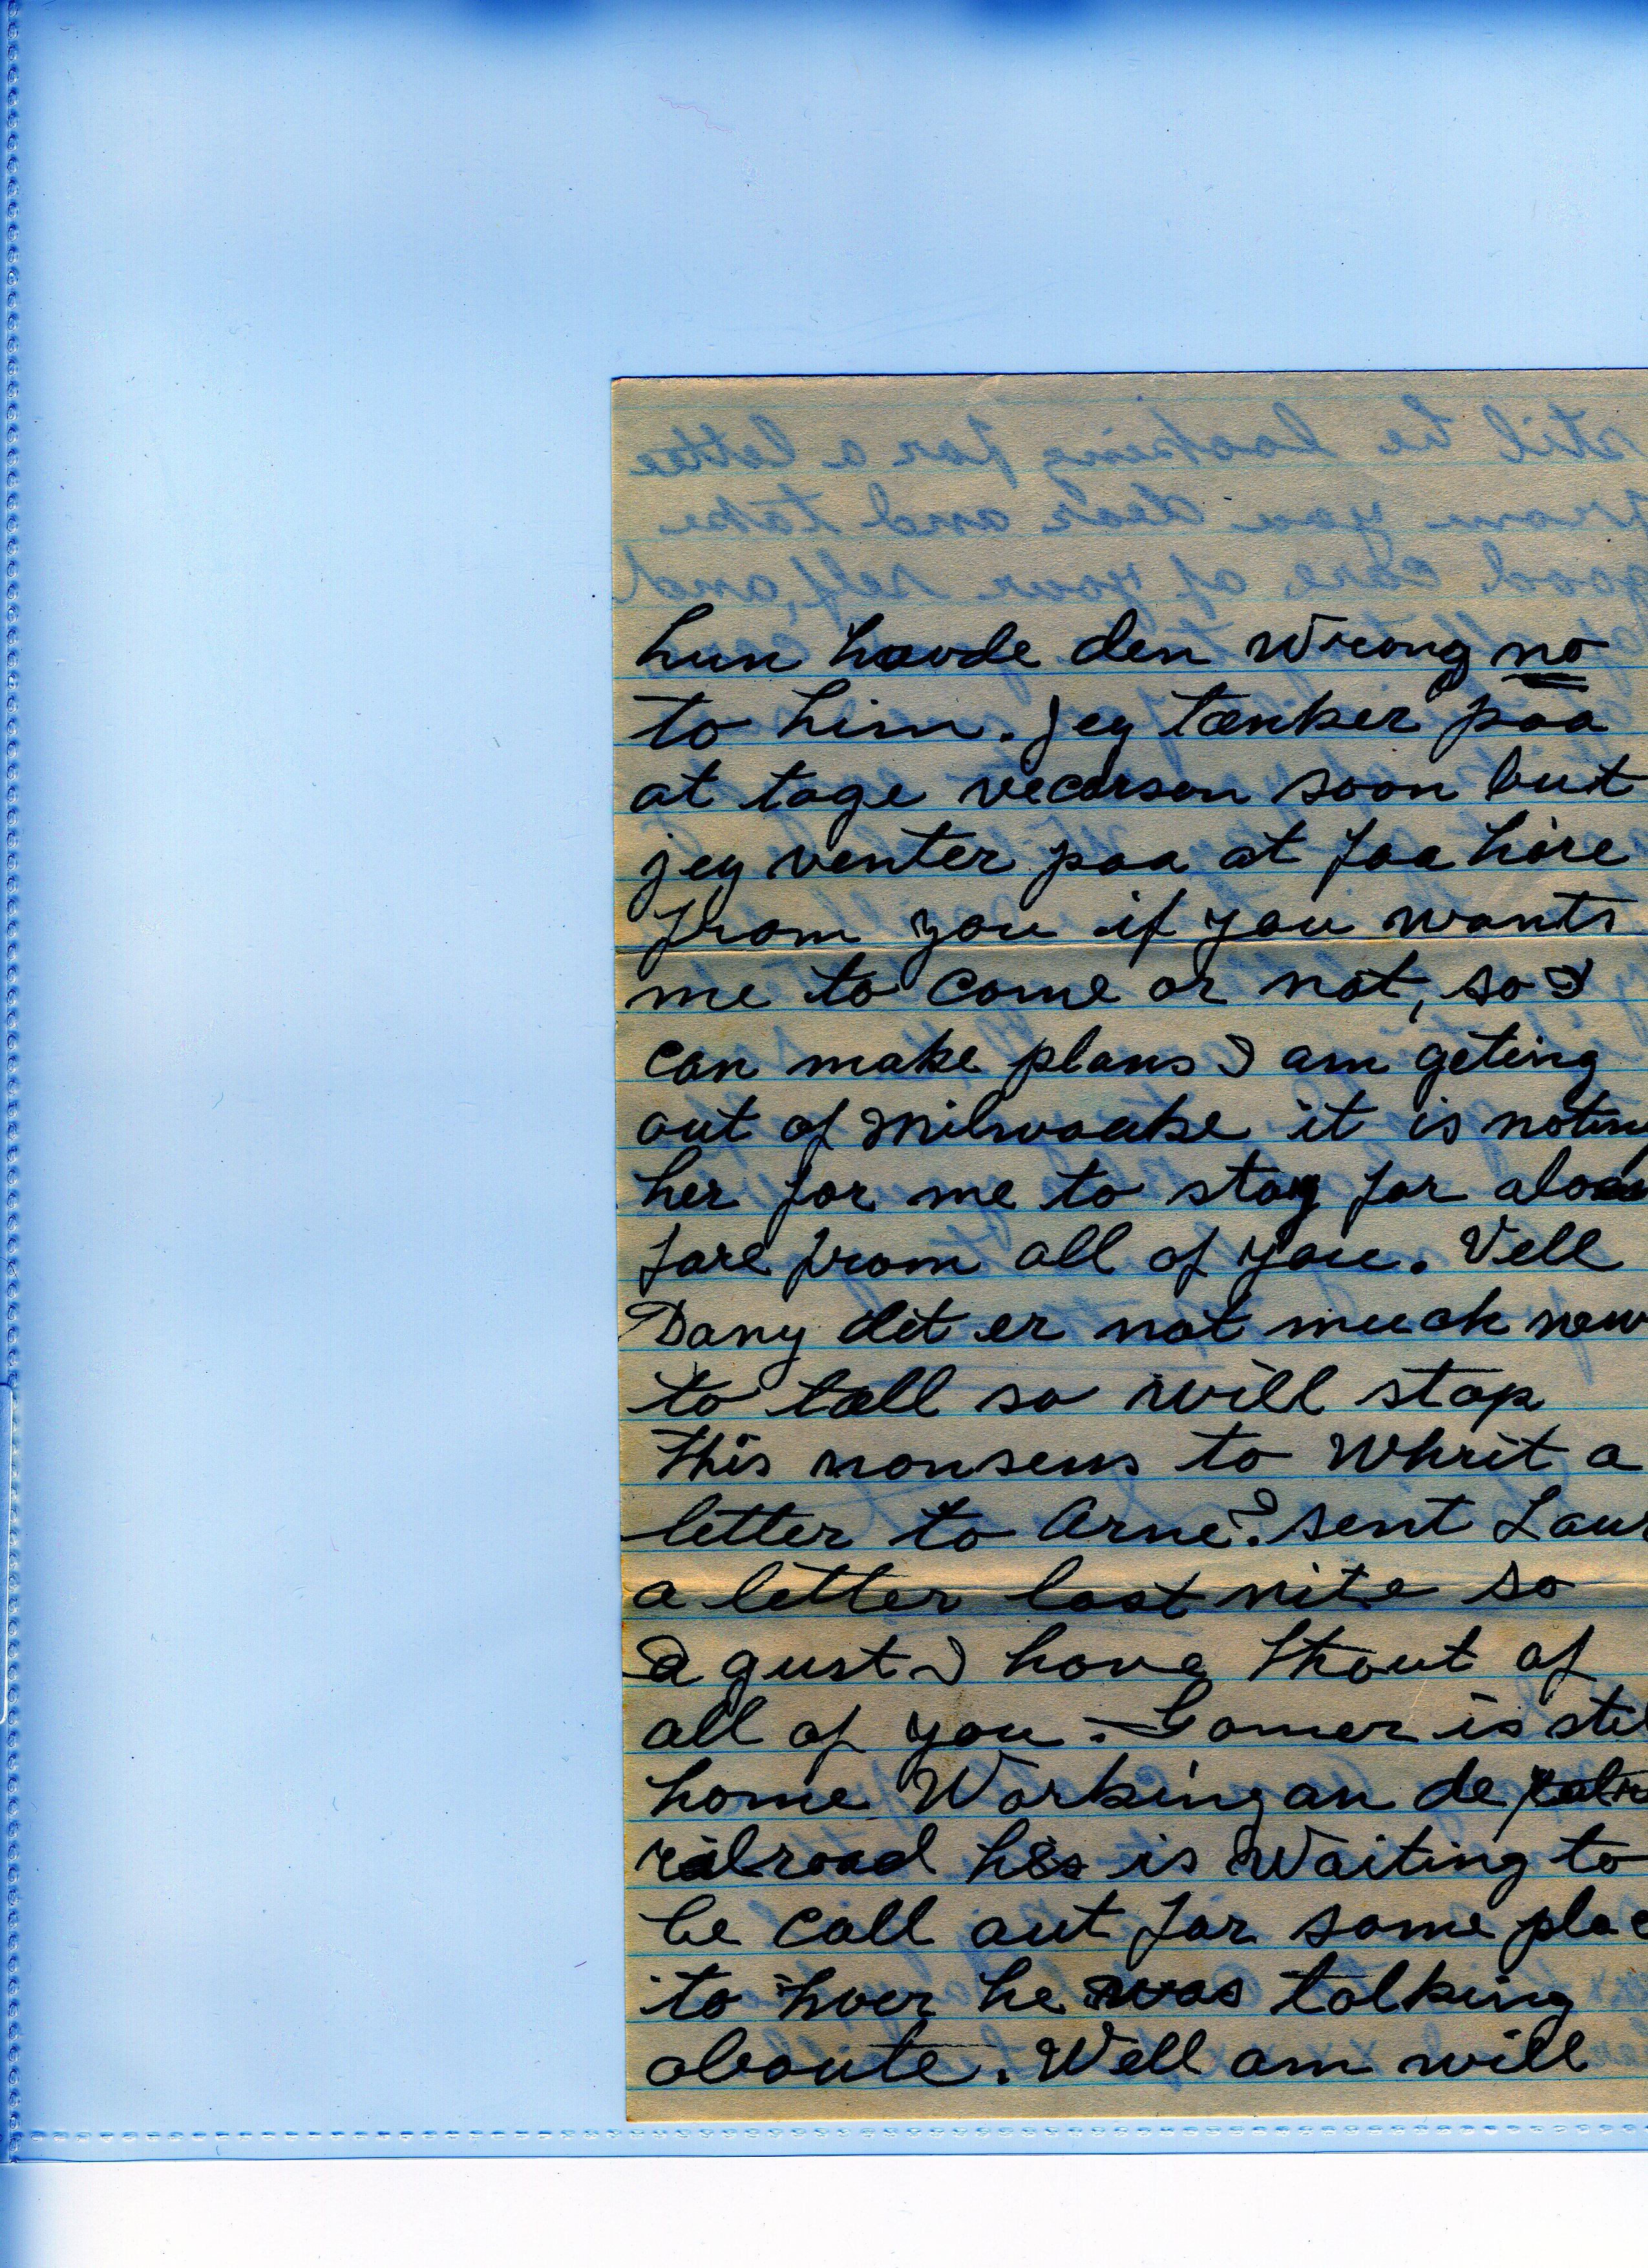 hun havde den Wrong no
to him. Jeg tænker paa
at tage vecarson soon but
jeg venter paa at faa høre
from you if you wants
me to come or not, so I
can make plans I am geting
out of Milwauke it is noting
her for me to stay for
fare from all of you. Vell
Dany det er not much new
to tæll so will stop
this nonsens to Whrit a
letter to Arne? sent Laur
a letter last nite so
gust I have thout of
all of you - Gomer is stil
home Working an de
railroad is Waiting to
be call out for some plac
to hver he was talking
aboute. Well am will